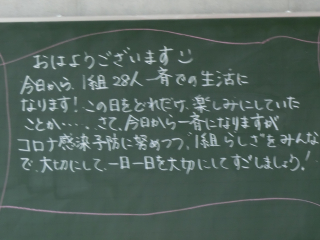 おはようございます
今日から、1組28人一斉での生活に
なります!この日をどれだけ、楽しみにしていた
ことか・・・。さて、今日から一斉になりますが
コロナ感染予防に努めつつ、"1組らしさ"をみんな
で、大切にして、一日一日を大切にしてすごしましょう!